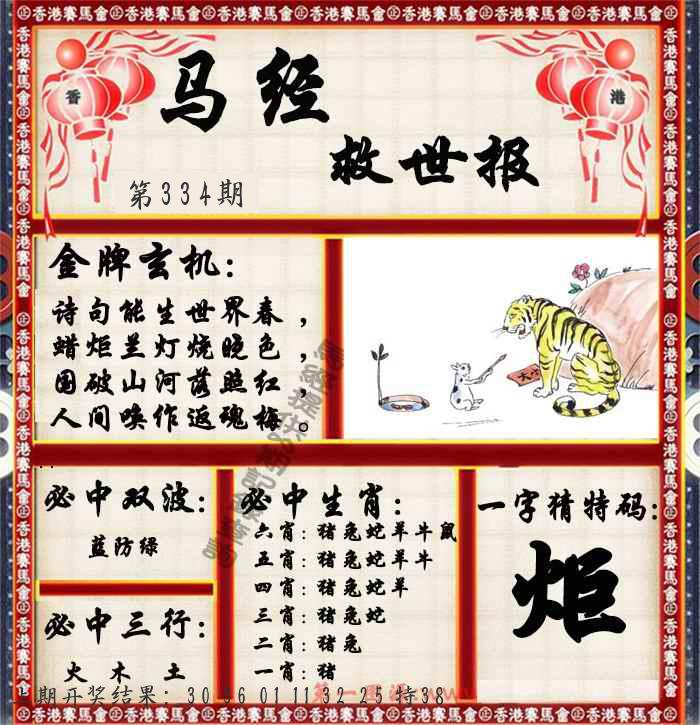 香港賽馬會 香港賽馬會 香港賽馬會 香港賽馬會 香港賽馬會 香港賽馬會
香 港
马经
救世报
第334期
金牌玄机：
诗句能生世界春，
蜡炬兰灯烧晚色，
国破山河落照红，
人间唤作返魂梅。
必中双波：
蓝防绿
必中三行：
火 木 土
必中生肖：
六肖：猪兔蛇羊牛鼠
五肖：猪兔蛇羊牛
四肖：猪兔蛇羊
三肖：猪兔蛇
二肖：猪兔
一肖：猪
一字猜特码：
炬
期开奖结果：30 36 01 11 32 25 特38
第一图源